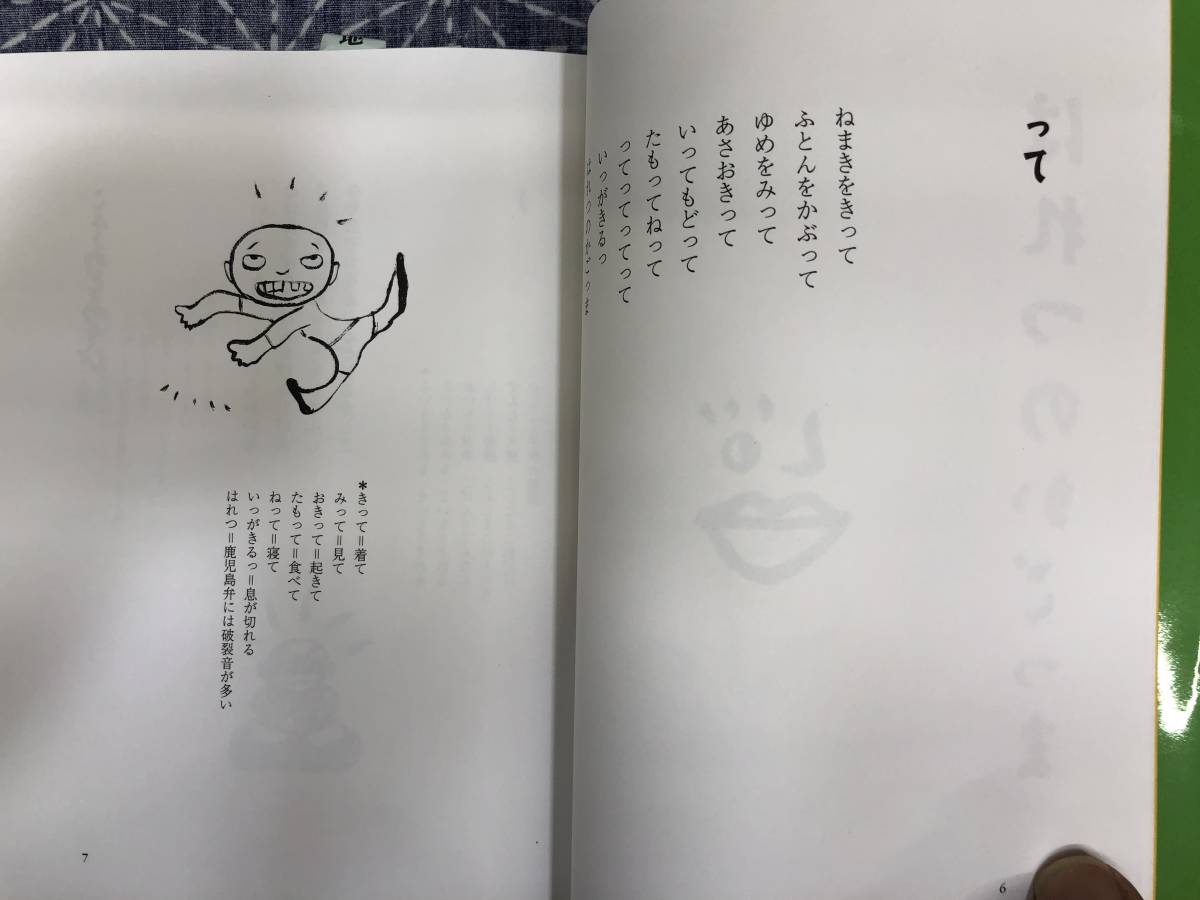 って
ねまきをきって
ふとんをかぶって
ゆめをみって
あさおきって
いってもどって
たもってねって
ってってってって
いっがきるっ
はれつのかごっま
6
*きって=着て
みって=見て
おきって=起きて
たもって=食べて
ねって=寝て
いっがきるっ=息が切れる
はれつ=鹿児島弁には破裂音が多い
7
地